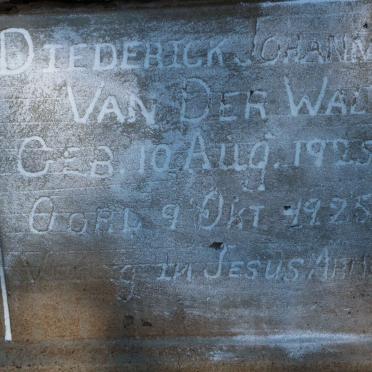 DIEDERICK JOHANN
VAN DER WAL
GEB. 10 AUG. 1925
OORL 9 OKT 1925
VEILIG IN JESUS ARM